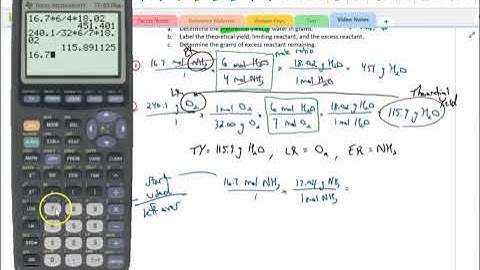 TEXAS INSTRUMENTS TI-83 Plus
16.7*6/4*18.02
451.401
240.1/32*6/7*18.
02
115.891125
16.7
Practice Notes Reference Materials Answer Keys Test Video Notes
a. Determine the theoretical yield of water in grams.
b. Label the theoretical yield, limiting reactant, and the excess reactant.
c. Determine the grams of excess reactant remaining.
ER mole ratio
16.7 mol NH3 / 1 × 6 mol H2O / 4 mol NH3 × 18.02 g H2O / 1 mol H2O = 451 g H2O
LR Theoretical Yield
240.1 g O2 / 1 × 1 mol O2 / 32.00 g O2 × 6 mol H2O / 7 mol O2 × 18.02 g H2O / 1 mol H2O = 115.9 g H2O
TY = 115.9 g H2O , LR = O2 , ER = NH3
start
- used
left over
16.7 mol NH3 / 1 × 17.04 g NH3 / 1 mol NH3 =